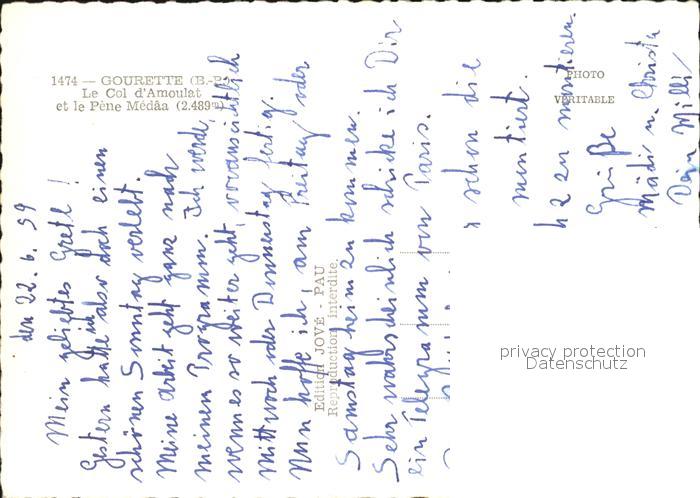 1474 — GOURETTE (B.-P.)
Le Col d'Amoulat
et le Pène Médâa (2.489m)
PHOTO
VÉRITABLE
Edition JOVÉ - PAU
Reproduction interdite
den 22.6.59
Mein geliebtes Gretl!
Gestern hatte ich also doch einen
schönen Sonntag verlebt.
Meine Arbeit geht ganz nach
meinem Programm. Ich werde,
wenn es so weiter geht, voraussichtlich
Mittwoch oder Donnerstag fertig.
Nun hoffe ich, am Freitag oder
Samstag heim zu kommen.
Sehr wahrscheinlich schicke ich Dir
ein Telegramm von Paris.
schon die
montiert.
zu montieren.
Grüße
Mädi u. Christa
Dein Milli
privacy protection
Datenschutz